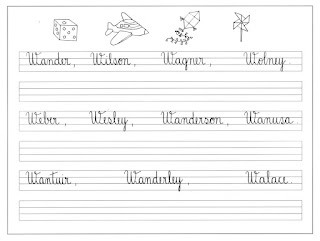 Wander, Wilson, Wagner, Wolney.
Weber, Wesley, Wanderson, Wanusa.
Wantuir, Wanderley, Walace.